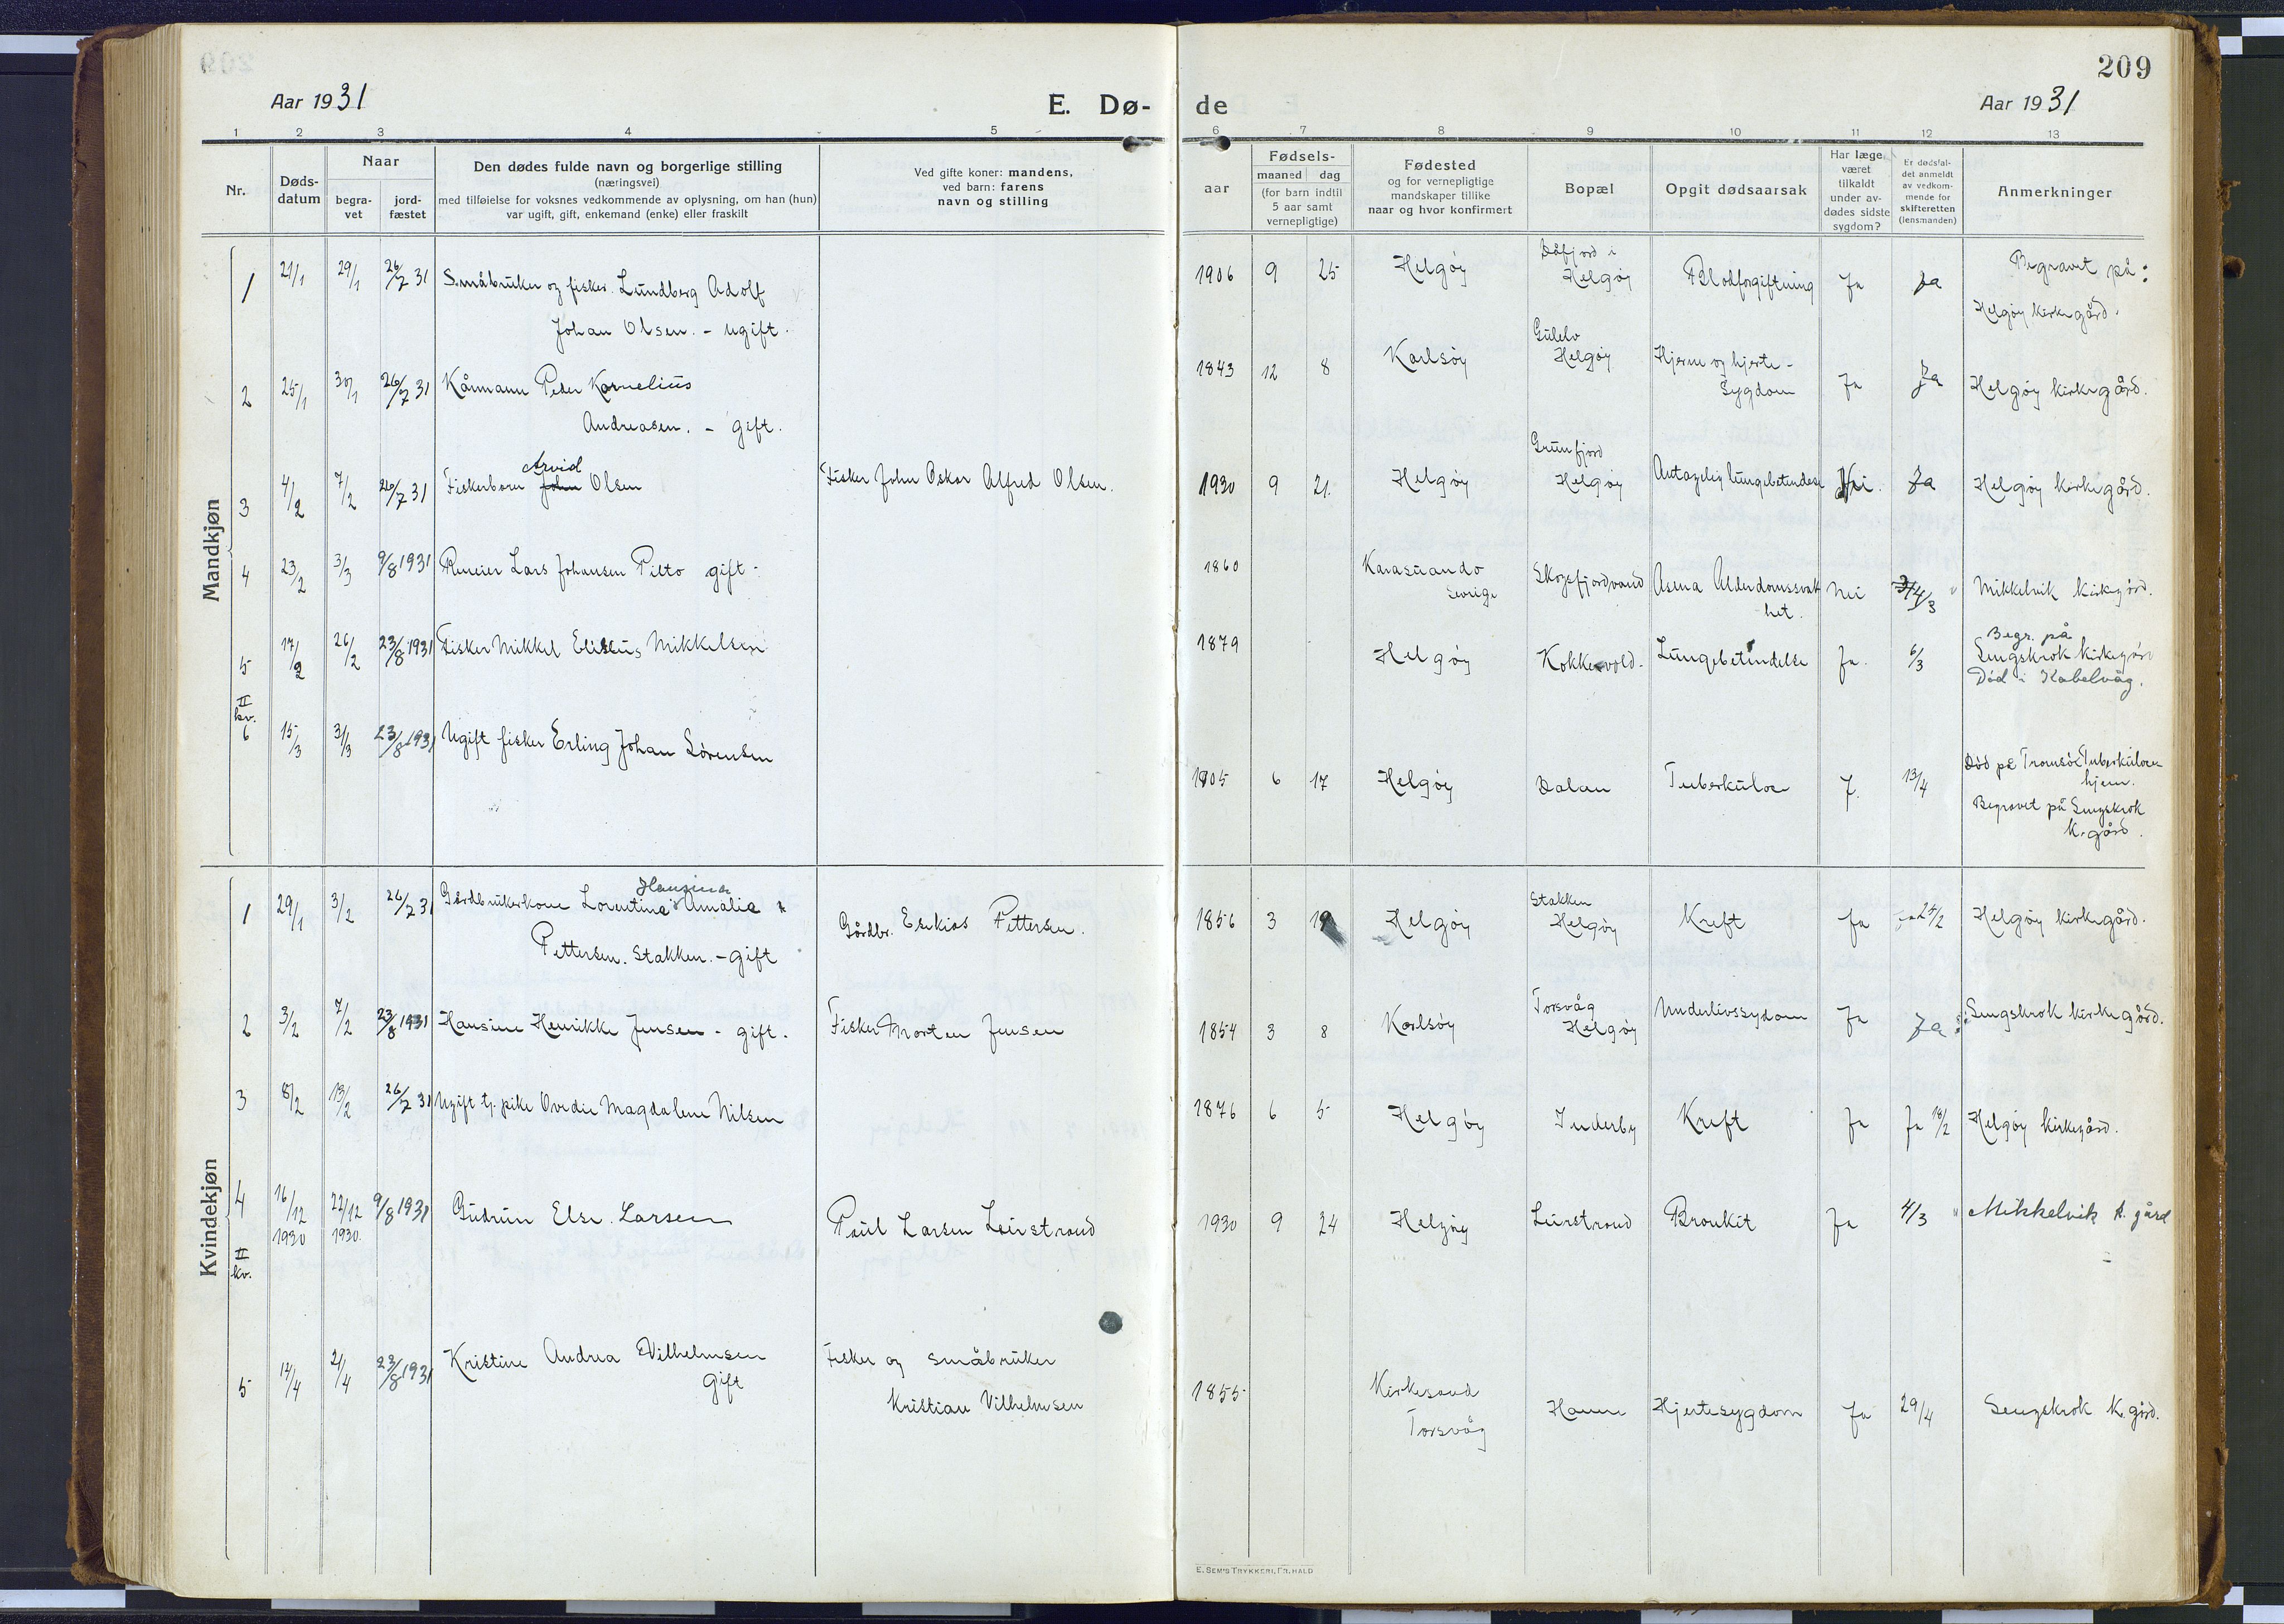 209
Aar 1931
E. Dø-
de
Aar 1931
1 2 3 4 5 6 7 8 9 10 11 12 13
Nr.
Døds-
datum
Naar
begra-
vet
jord-
fæstet
Den dødes fulde navn og borgerlige stilling
(næringsvei)
med tilføielse for voksnes vedkommende av oplysning, om han (hun)
var ugift, gift, enkemand (enke) eller fraskilt
Ved gifte koner: mandens,
ved barn: farens
navn og stilling
aar
Fødsels-
maaned dag
(for barn indtil
5 aar samt
vernepligtige)
Fødested
og for vernepligtige
mandskaper tillike
naar og hvor konfirmert
Bopæl
Opgit dødsaarsak
Har læge
været
tilkaldt
under av-
dødes sidste
sygdom?
Er dødsfal-
det anmeldt
av vedkom-
mende for
skifteretten
(lensmanden)
Anmerkninger
Mandkjøn
1 21/1 29/1 26/7 31 Småbruker og fisker Lundberg Adolf
Johan Olsen. - ugift.
1906 9 25 Helgøy
Dåfjord i
Helgøy
Blodforgiftning Ja Ja
Begravet på:
Helgøy kirkegård.
2 25/1 30/1 26/7 31 Kårmann Peder Kornelius
Andreasen. - gift.
1843 12 8 Karlsøy
Gulelv
Helgøy
Hjerne og hjerte-
sygdom
Ja Ja Helgøy kirkegård.
3 4/2 7/2 26/7 31 Fiskerbarn John Olsen
Arvid
Fisker John Oskar Alfred Olsen.
1930 9 21. Helgøy
Grunfjord
Helgøy
Antagelig lungebetendelse Nei. Ja Helgøy kirkegård.
4 23/2 3/3 9/8 1931 Reneier Lars Johansen Pilto gift.
1860 Karasuando
Sverige
Skogsfjordvand
Asma Alderdomssvak
het.
Nei 4/3 Mikkelvik kirkegård.
5 17/2 26/2 23/8 1931 Fisker Mikkel Eliseus Mikkelsen
1879 Helgøy Kokkevold. Lungebetendelse Ja. 6/3
Begr. på
Sengskrok kirkegård
Død i Kabelvåg.
II
kv.
6 15/3 31/3 23/8 1931 Ugift fisker Erling Johan Sørensen
1905 6 17 Helgøy Dalan Tuberkulose J. 13/4
Død på Tromsø Tuberkulose
hjem.
Begravet på Sengskrok
K.gård.
Kvindekjøn
1 29/1 3/2 26/7 31 Gårdbrukerkone Lorentine Amalie
Hansina
Pettersen. Stakken. - gift
Gårdbr. Esekias Pettersen.
1856 3 19 Helgøy
Stakken
Helgøy
Kreft Ja 24/2 Helgøy kirkegård.
2 3/2 7/2 23/8 1931 Hansine Henrikke Jensen - gift.
Fisker Morten Jensen
1854 3 8 Karlsøy
Torsvåg
Helgøy
Underlivssydom Ja Ja Sengskrok kirkegård.
3 8/2 13/2 26/7 31 Ugift tj. pike Ovedie Magdalene Nilsen
1876 6 5 Helgøy Inderby Kreft Ja Ja 18/2 Helgøy kirkegård.
4 16/12 22/12 9/8 1931 Gudrun Else Larsen
1930 1930.
Paul Larsen Leirstrand
1930 9 24 Helgøy Leirstrand Bronkit Ja 4/3 Mikkelvik k. gård
II
kv.
5 14/4 21/4 23/8 1931 Kristine Andrea Vilhelmsen
gift
Fisker og småbruker
Kristian Vilhelmsen
1855
Kirkesand
Torsvåg
Hamre Hjertesygdom Ja 29/4 Sengskrok K.gård.
E. SEM'S TRYKKERI, FR.HALD